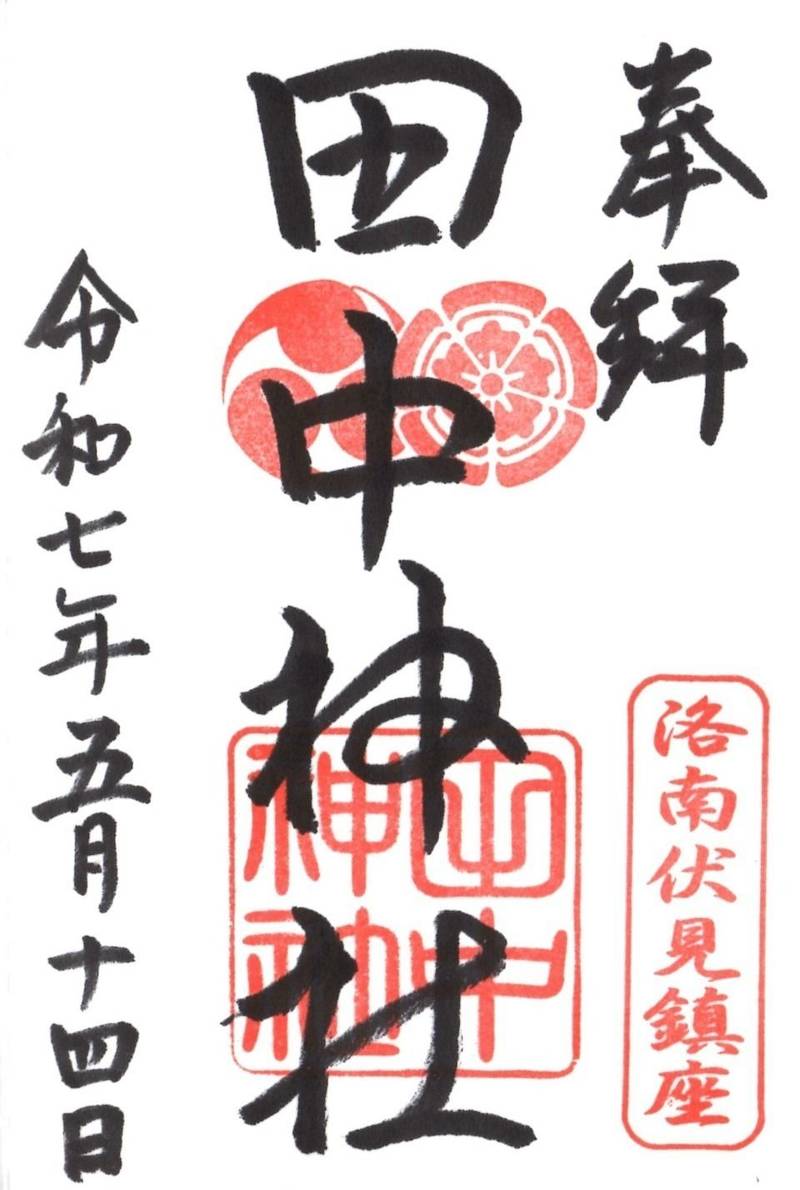 奉拝
洛南伏見鎮座
田中神社
田中神社
令和七年五月十四日